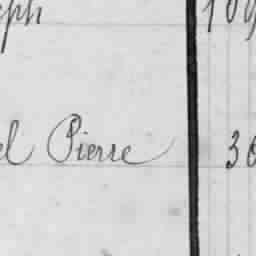 eph 109
el Pierre 36